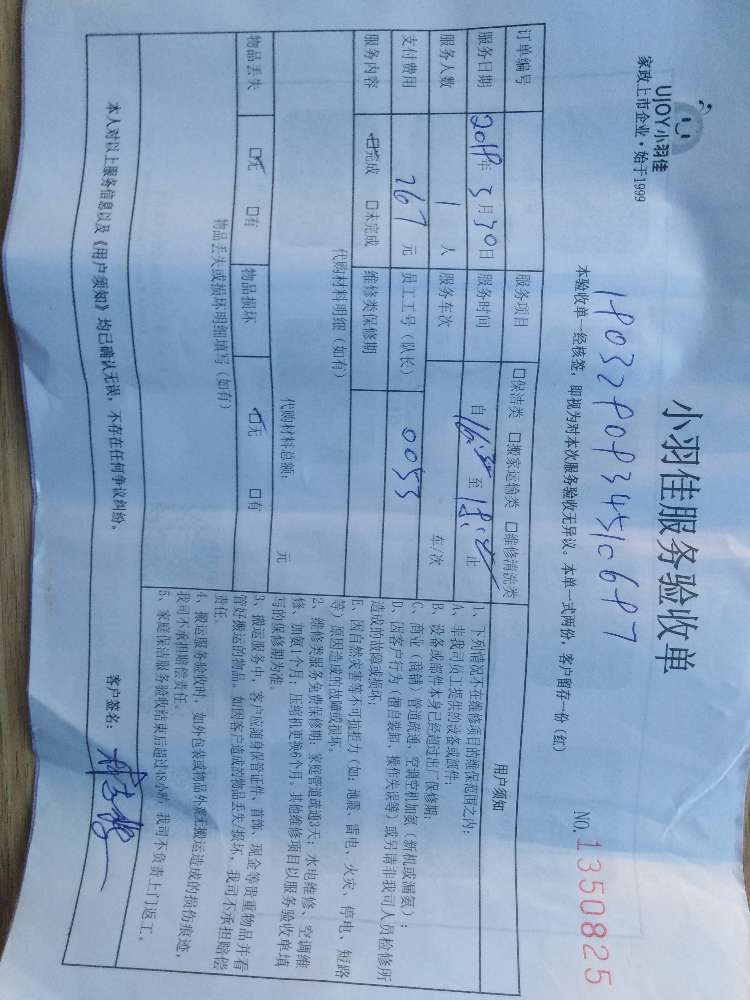 UJOY小羽佳
家政上市企业·始于1999
小羽佳服务验收单
NO. 1350825
本验收单一经核签，即视为对本次服务验收无异议。本单一式两份，客户留存一份（红）
订单编号
服务项目 □保洁类 □搬家运输类 □维修清洗类
服务日期 2019年3月30日 服务时间 自 至 止
服务人数 1 人 服务车次 车/次
支付费用 267 元 员工工号（队长） 0053
服务内容 □完成 □未完成 维修类保修期
代购材料明细（如有）
代购材料总额： 元
物品丢失 □无 □有 物品损坏 □无 □有
物品丢失或损坏明细填写（如有）
用户须知
1、下列情况不在维修项目的维保范围之内：
A、非我司员工提供的设备或部件；
B、设备或部件本身已经超过出厂保修期；
C、商业（商铺）管道疏通、空调空机加氨（新机或漏氨）；
D、因客户行为（擅自装卸、操作失误等）或另请非我司人员检修所
造成的故障或损坏；
E、因自然灾害等不可抗拒力（如：地震、雷电、火灾、停电、短路
等）原因造成的故障或损坏。
2、维修类服务免费保修期：家庭管道疏通3天；水电维修、空调维
修、加氨1个月；压缩机更换6个月。其他维修项目以服务验收单填
写的保修期为准。
3、搬运服务中，客户应随身保管证件、首饰、现金等贵重物品并看
管好搬运的物品。如因客户造成的物品丢失/损坏，我司不承担赔偿
责任。
4、搬运服务验收时，如外包装或物品外观无搬运造成的损伤痕迹，
我司不承担赔偿责任。
5、家庭保洁服务验收结束后超过48小时，我司不负责上门返工。
本人对以上服务信息以及《用户须知》均已确认无误，不存在任何争议纠纷。 客户签名：